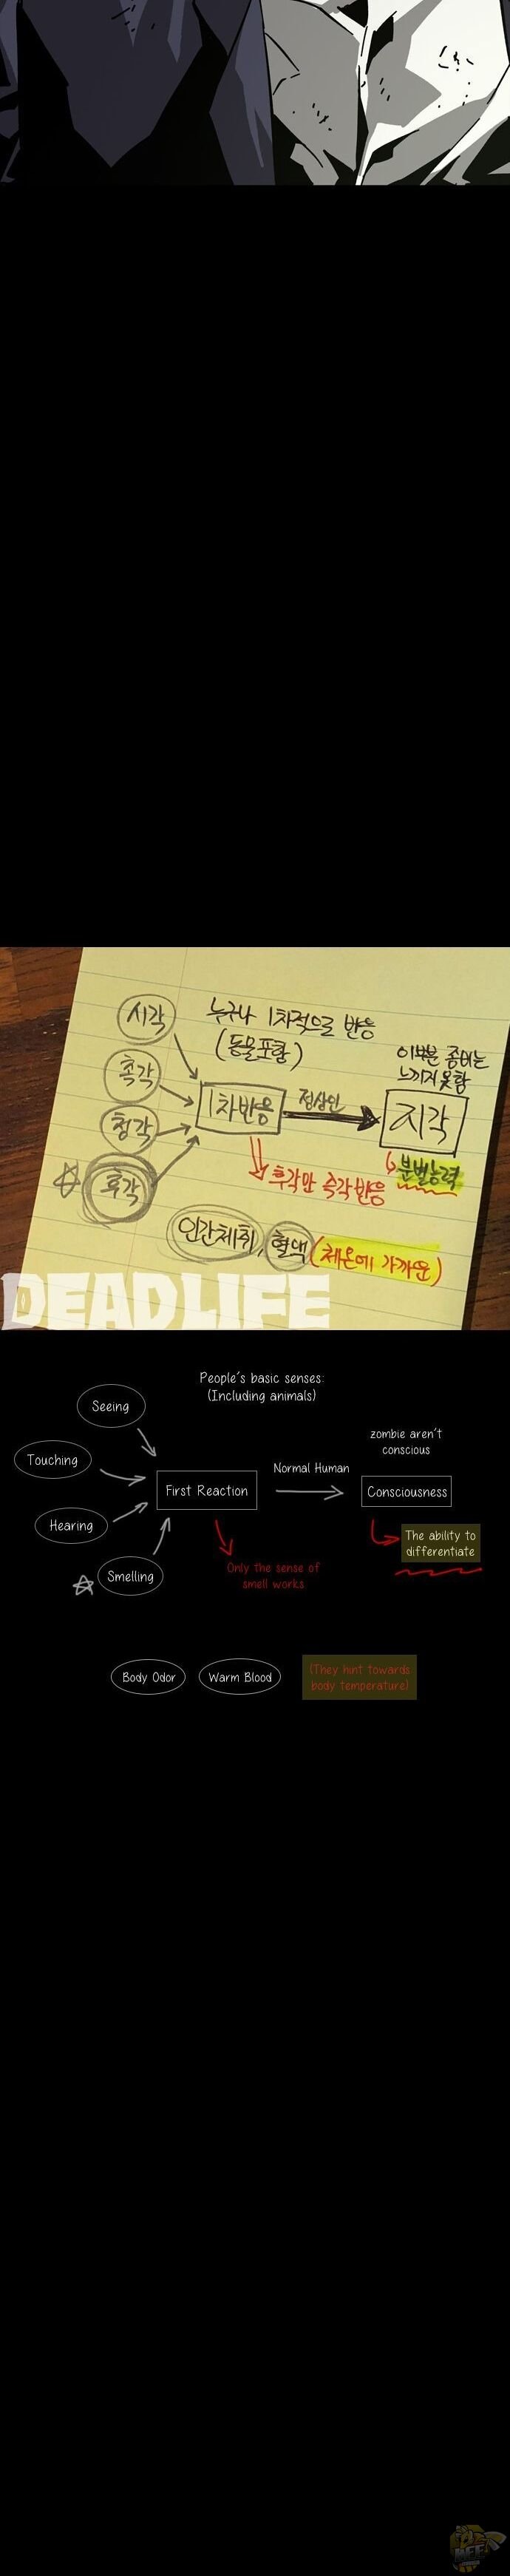 시각
누구나 1차적으로 반응
(동물포함)
촉각
이부분 좀비는
느끼지 못함
1차반응
정상인
지각
청각
분별능력
후각
후각만 즉각반응
인간체취, 혈액 (체온에 가까운)
DEADLIFE
People's basic senses:
(Including animals)
Seeing
zombie aren't
conscious
Touching
Normal Human
First Reaction
Consciousness
Hearing
The ability to
differentiate
Only the sense of
smell works
Smelling
Body Odor
Warm Blood
(They hint towards
body temperature)
BEE